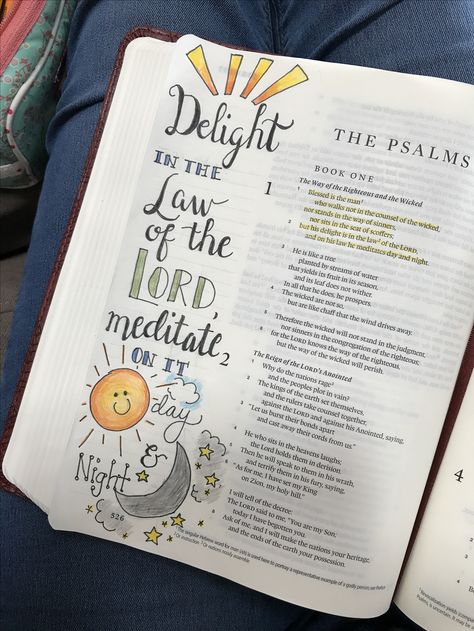 Delight
IN THE
Law
of the
LORD,
meditate
ON IT
day
&
Night
526
THE PSALMS
BOOK ONE
The Way of the Righteous and the Wicked
1 ¹ Blessed is the man¹
who walks not in the counsel of the wicked,
nor stands in the way of sinners,
nor sits in the seat of scoffers;
² but his delight is in the law² of the LORD,
and on his law he meditates day and night.
³ He is like a tree
planted by streams of water
that yields its fruit in its season,
and its leaf does not wither.
In all that he does, he prospers.
⁴ The wicked are not so,
but are like chaff that the wind drives away.
⁵ Therefore the wicked will not stand in the judgment,
nor sinners in the congregation of the righteous;
⁶ for the LORD knows the way of the righteous,
but the way of the wicked will perish.
The Reign of the LORD's Anointed
2 Why do the nations rage³
and the peoples plot in vain?
² The kings of the earth set themselves,
and the rulers take counsel together,
against the LORD and against his Anointed, saying,
³ "Let us burst their bonds apart
and cast away their cords from us."
⁴ He who sits in the heavens laughs;
the Lord holds them in derision.
⁵ Then he will speak to them in his wrath,
and terrify them in his fury, saying,
⁶ "As for me, I have set my King
on Zion, my holy hill."
⁷ I will tell of the decree:
The LORD said to me, "You are my Son;
today I have begotten you.
⁸ Ask of me, and I will make the nations your heritage,
and the ends of the earth your possession.
¹ The singular Hebrew word for man (ish) is used here to portray a representative example of a godly person; see Preface
² Or instruction ³ Or nations noisily assemble
4
¹ Revocalization yields (compare
Psalms, is uncertain. It may be